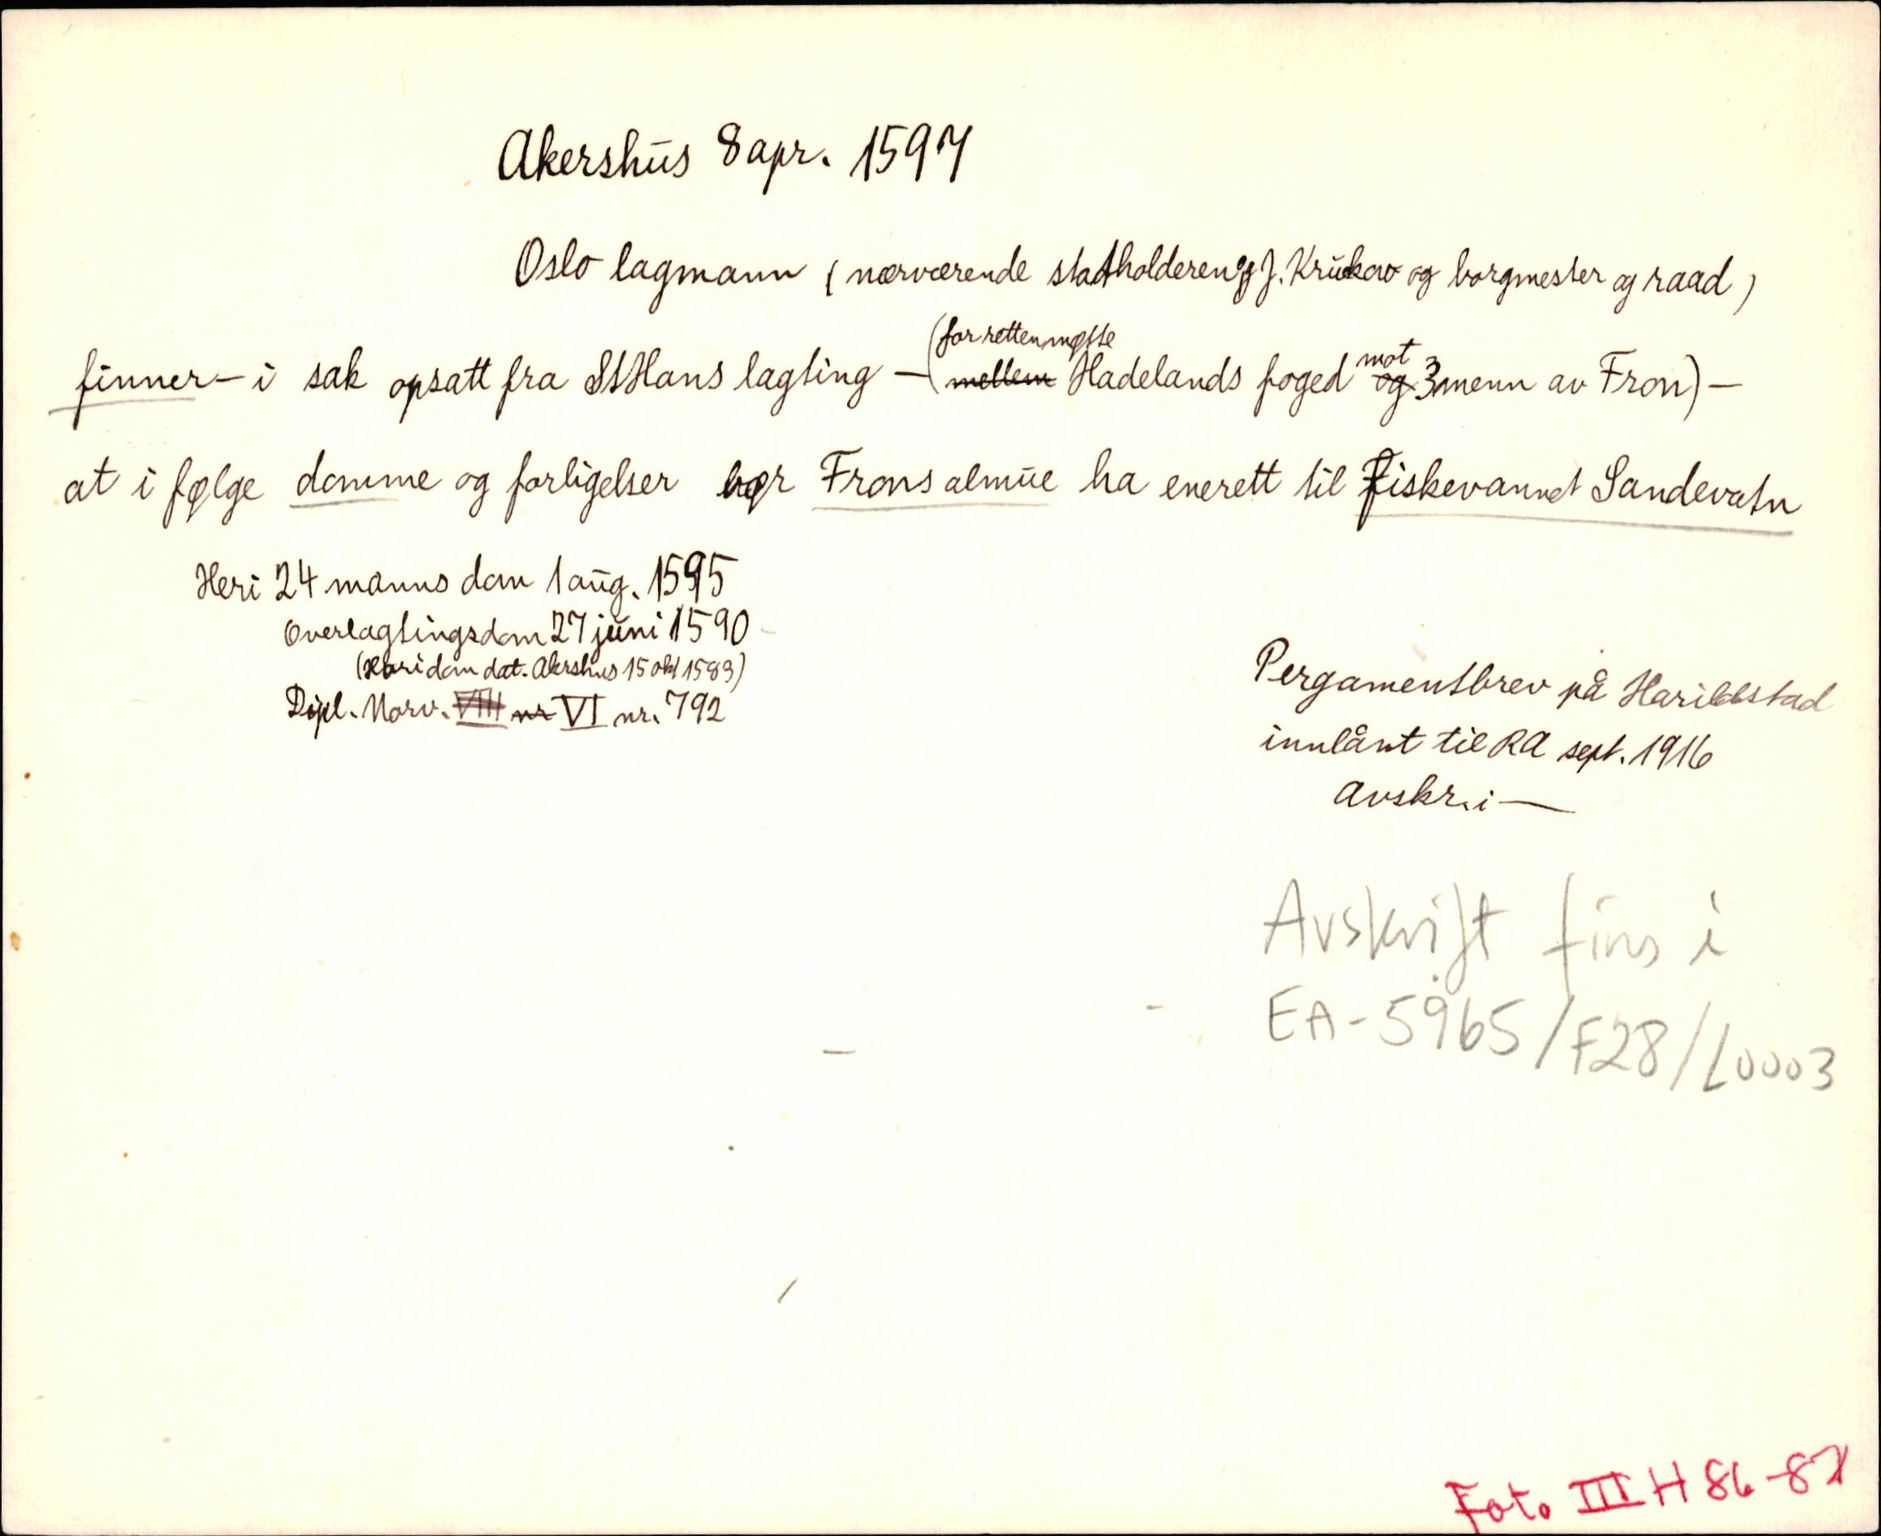 Akershus 8 apr. 1597
Oslo lagmann (nærværende stadholderen og J. Krukow og borgmester og raad)
(for retten møtte
finner – i sak opsatt fra StHans lagting – (mellem Hadelands foged mot og 3 menn av Fron) –
at i følge domme og forligelser bør Frons almue ha enerett til Fiskevannet Sandevatn
Heri 24 manns dom 1 aug. 1595
Overlagtingsdom 27 juni 1590
(Heri dom dat. Akershus 15 okt 1583)
Dipl. Norv. VIII nr VI nr. 792
Pergamentbrev på Harildstad
innlånt til RA sept. 1916
Avskr. i —
Avskrift fins i
EA-5965/F28/L0003
Foto III H 86-87